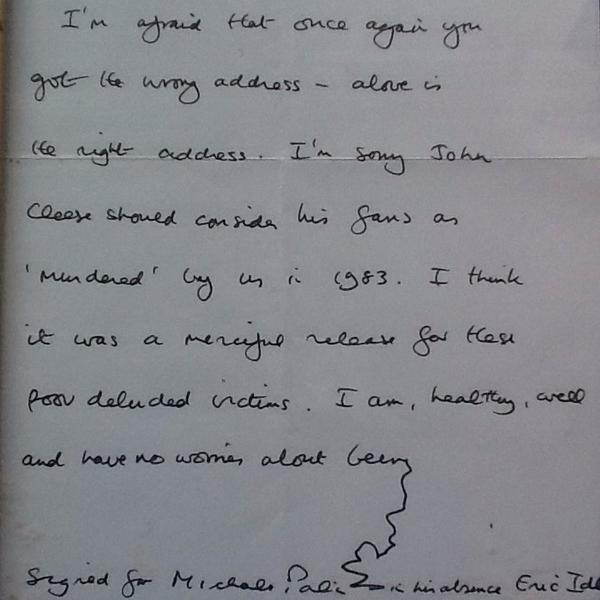 I'm afraid that once again you
got the wrong address - above is
the right address. I'm sorry John
Cleese should consider his fans as
'murdered' by us in 1983. I think
it was a merciful release for these
poor deluded victims. I am, healthy, well
and have no worries about being
Signed for Michael Palin in his absence Eric Idl